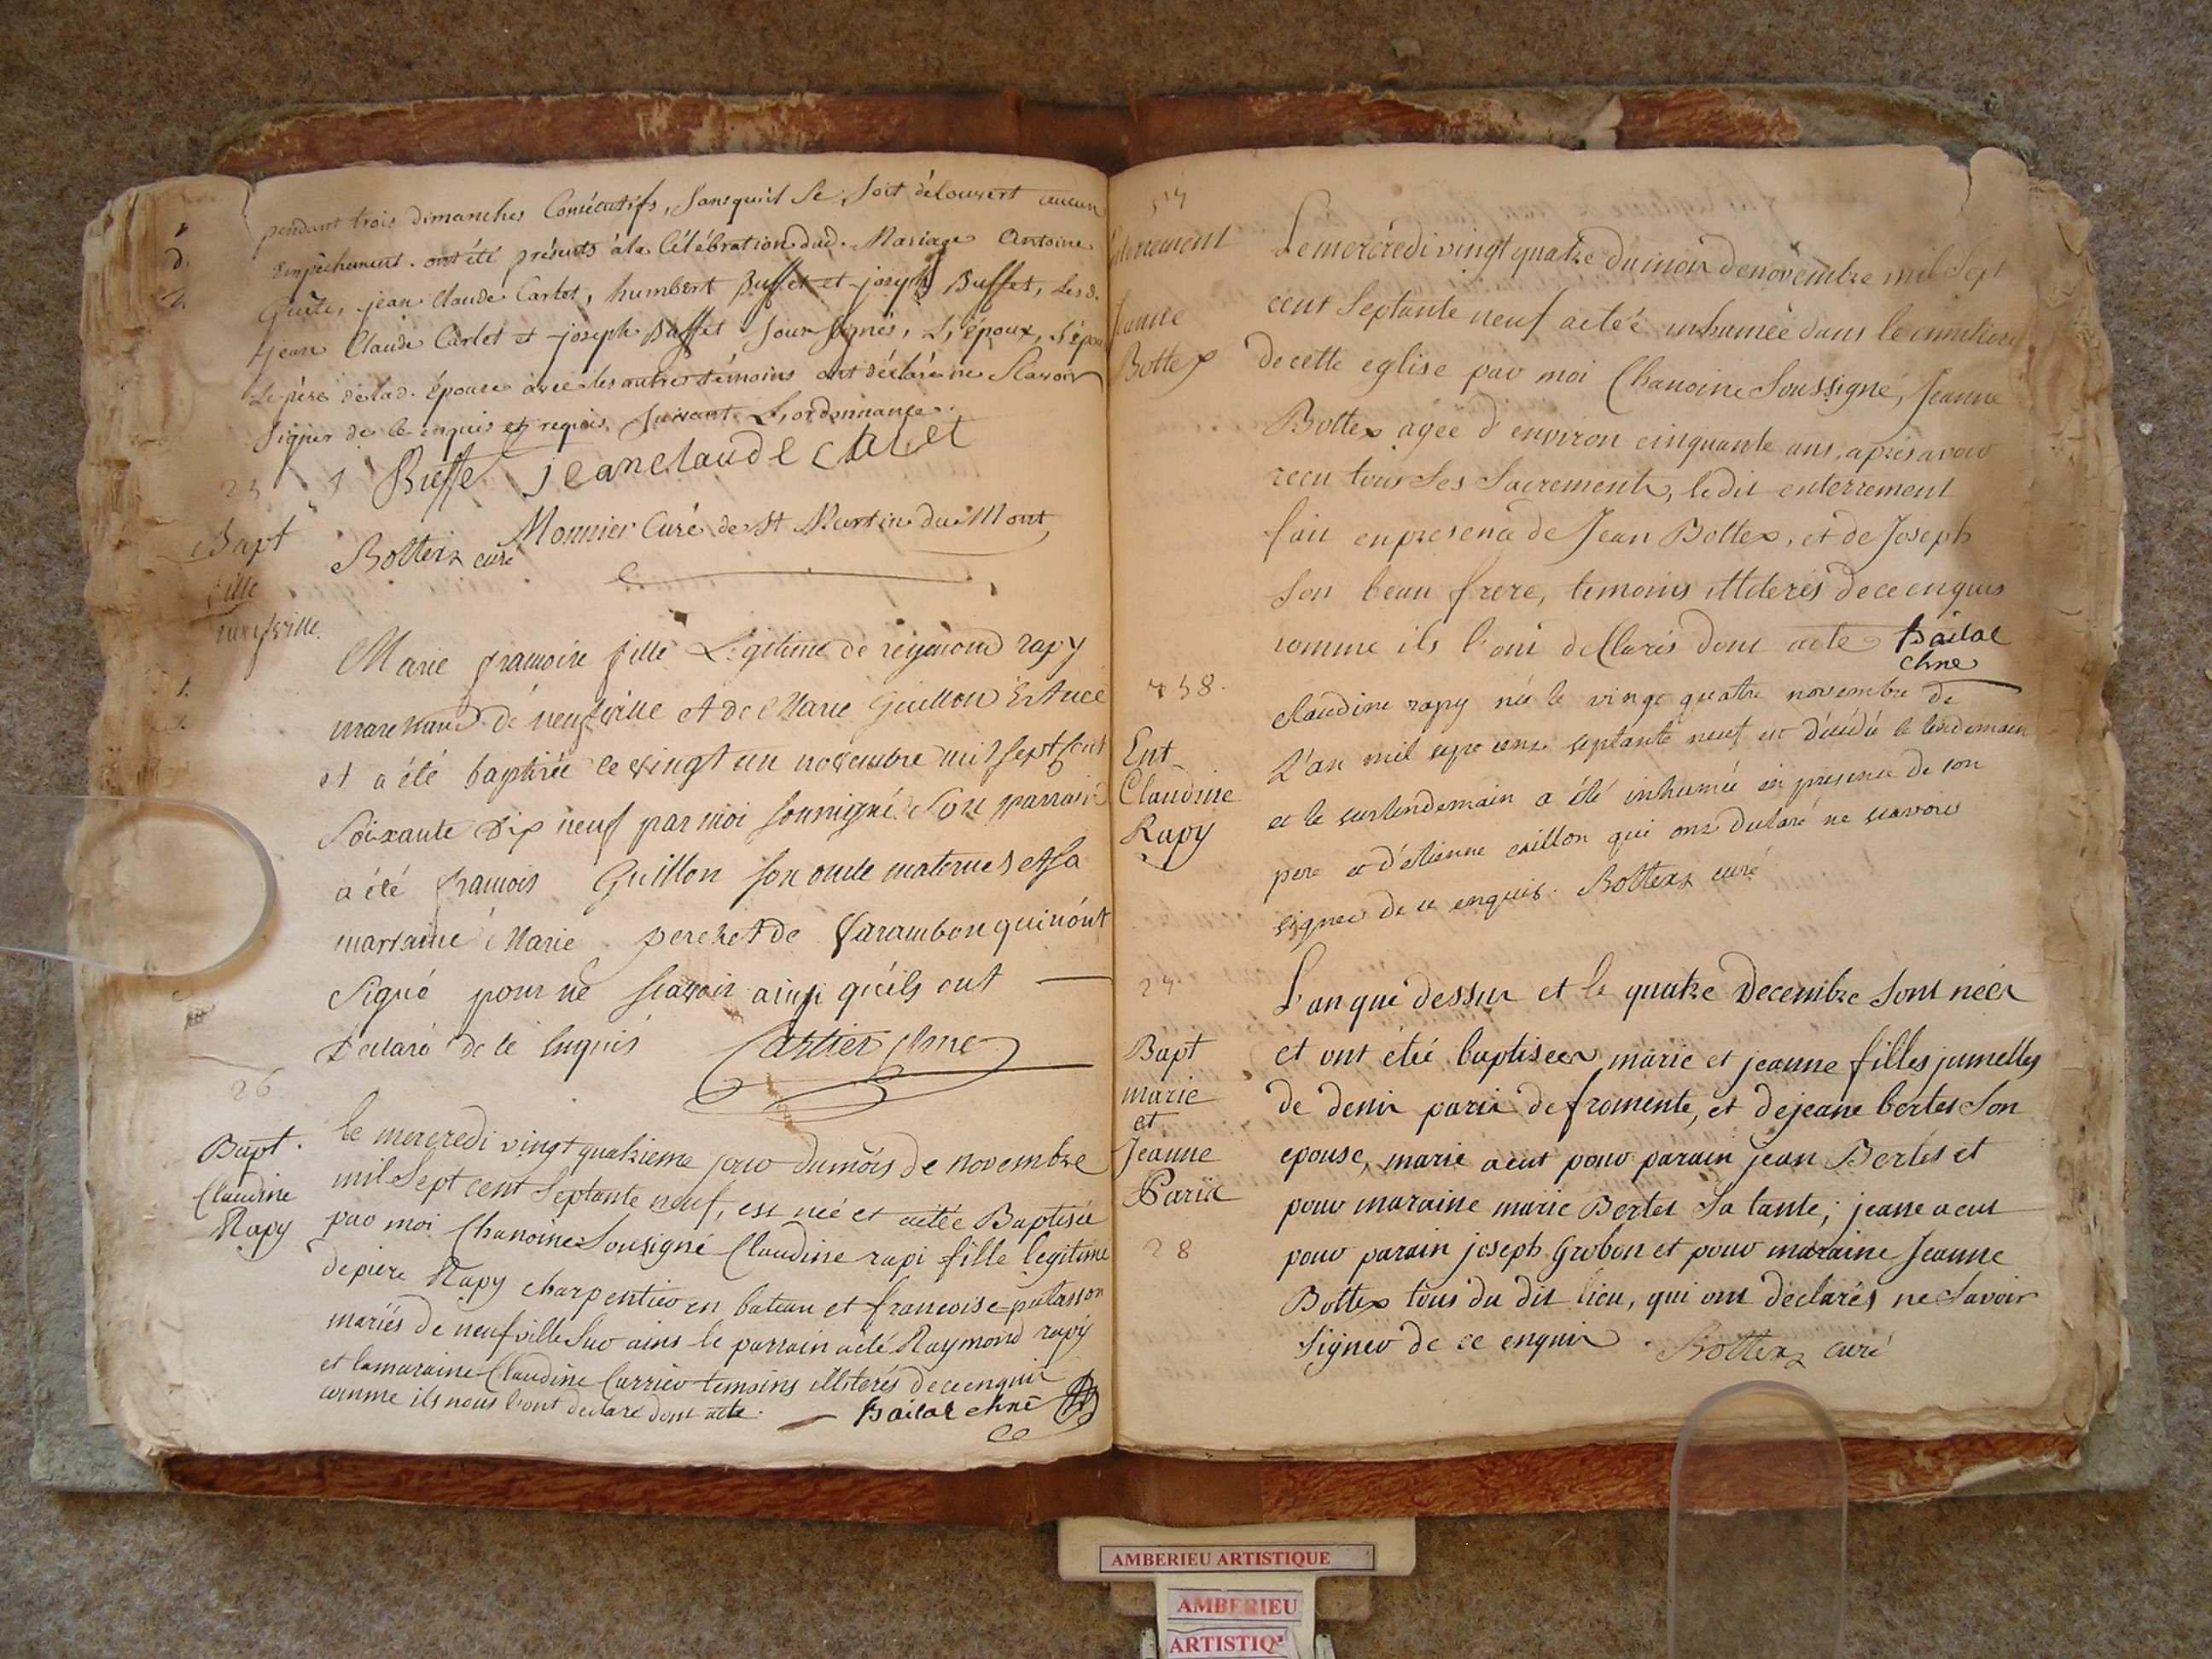 pendant trois dimanches Consécutifs, sansquil se soit découvert aucun
Empêchement. ont été présents à la Célébration dud. Mariage Antoine
jean Claude Cartet, humbert Buffet et joseph Buffet, Lesd.
jean Claude Cartet et joseph Buffet Soussignés, L'époux, L'épou
Le père de lad. épouse avec les autres témoins ont déclaré ne Scavoir
signer de ce enquis et requis suivant L'ordonnance.
Buffet jean claude Cartet
Monnier Curé de St Martin du Mont
Botteix curé
25
Bapt
fille
neufville.
Marie françoise fille Légitime de reymond rapy
marchand de neufville et de Marie Guillon Est née
et a été baptisée ce vingt un novembre mil sept cent
Soixante dix neuf par moi soussigné Son parrain
a été francois Guillon son oncle maternel et sa
marraine Marie perchet de Varambon qui n'ont
Signé pour ne scavoir ainsi qu'ils ont
Déclaré de ce Enquis Cartier chne
26
Bapt.
Claudine
Rapy
le mercredi vingt quatrieme jour du mois de novembre
mil Sept cent Septante neuf, est née et aétée Baptisée
par moi Chanoine Sousigné Claudine rapi fille legitime
de piere Rapy charpentier en bateau et francoise putasson
mariés de neufville sur ains le parrain aété Raymond rapy
et la maraine Claudine Carrier temoins illiterés de ce enquis
comme ils nous l'ont declaré dont acte. Bailat chne
514
Enterrement
Jeanne
Bottex
Le mercredi vingt quatre du mois de novembre mil Sept
cent Septante neuf aeteé inhumée dans le cimetiere
de cette eglise par moi Chanoine Soussigné, Jeanne
Bottex agée d'environ cinquante ans, après avoir
recu tous Ses Sacrements, le dit enterrement
fait en presence de Jean Bottex, et de Joseph
Son beau frere, temoins illiterés de ce enquis
comme ils l'ont déClarés dont acte Bailat
chne
458.
Ent
Claudine
Rapy
Claudine rapy née le vingt quatre novembre de
L'an mil sept cent septante neuf est décédée le lendemain
et le surlendemain a été inhumée en presence de son
pere et d'etienne caillon qui ont declaré ne scavoir
signer de ce enquis. Botteix curé
27.
Bapt
marie
et
Jeanne
Paris
28
L'an que dessus et le quatre Decembre Sont nées
et ont étéé baptisées marie et jeanne filles jumelles
de denis paris de fromente, et de jeane bertet Son
epouse, marie aeut pour parain jean Bertet et
pour maraine marie Bertet Sa tante; jeane aeut
pour parain joseph Grobon et pour maraine Jeanne
Bottex tous du dit lieu, qui ont déclarés ne Savoir
Signer de ce enquis. Botteix curé
AMBERIEU ARTISTIQUE
AMBERIEU
ARTISTIQ